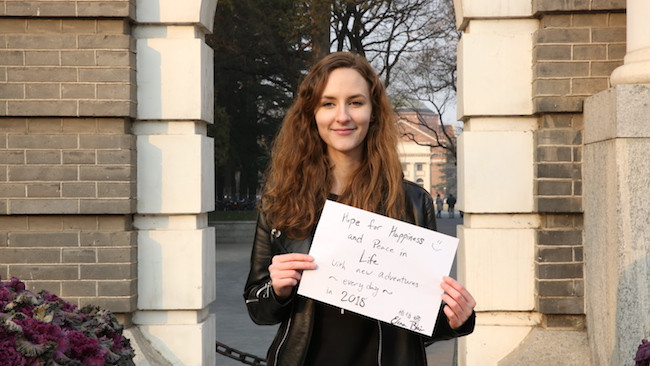 Hope for Happiness
and Peace in
Life
with new adventures
~ everyday ~
in 2018